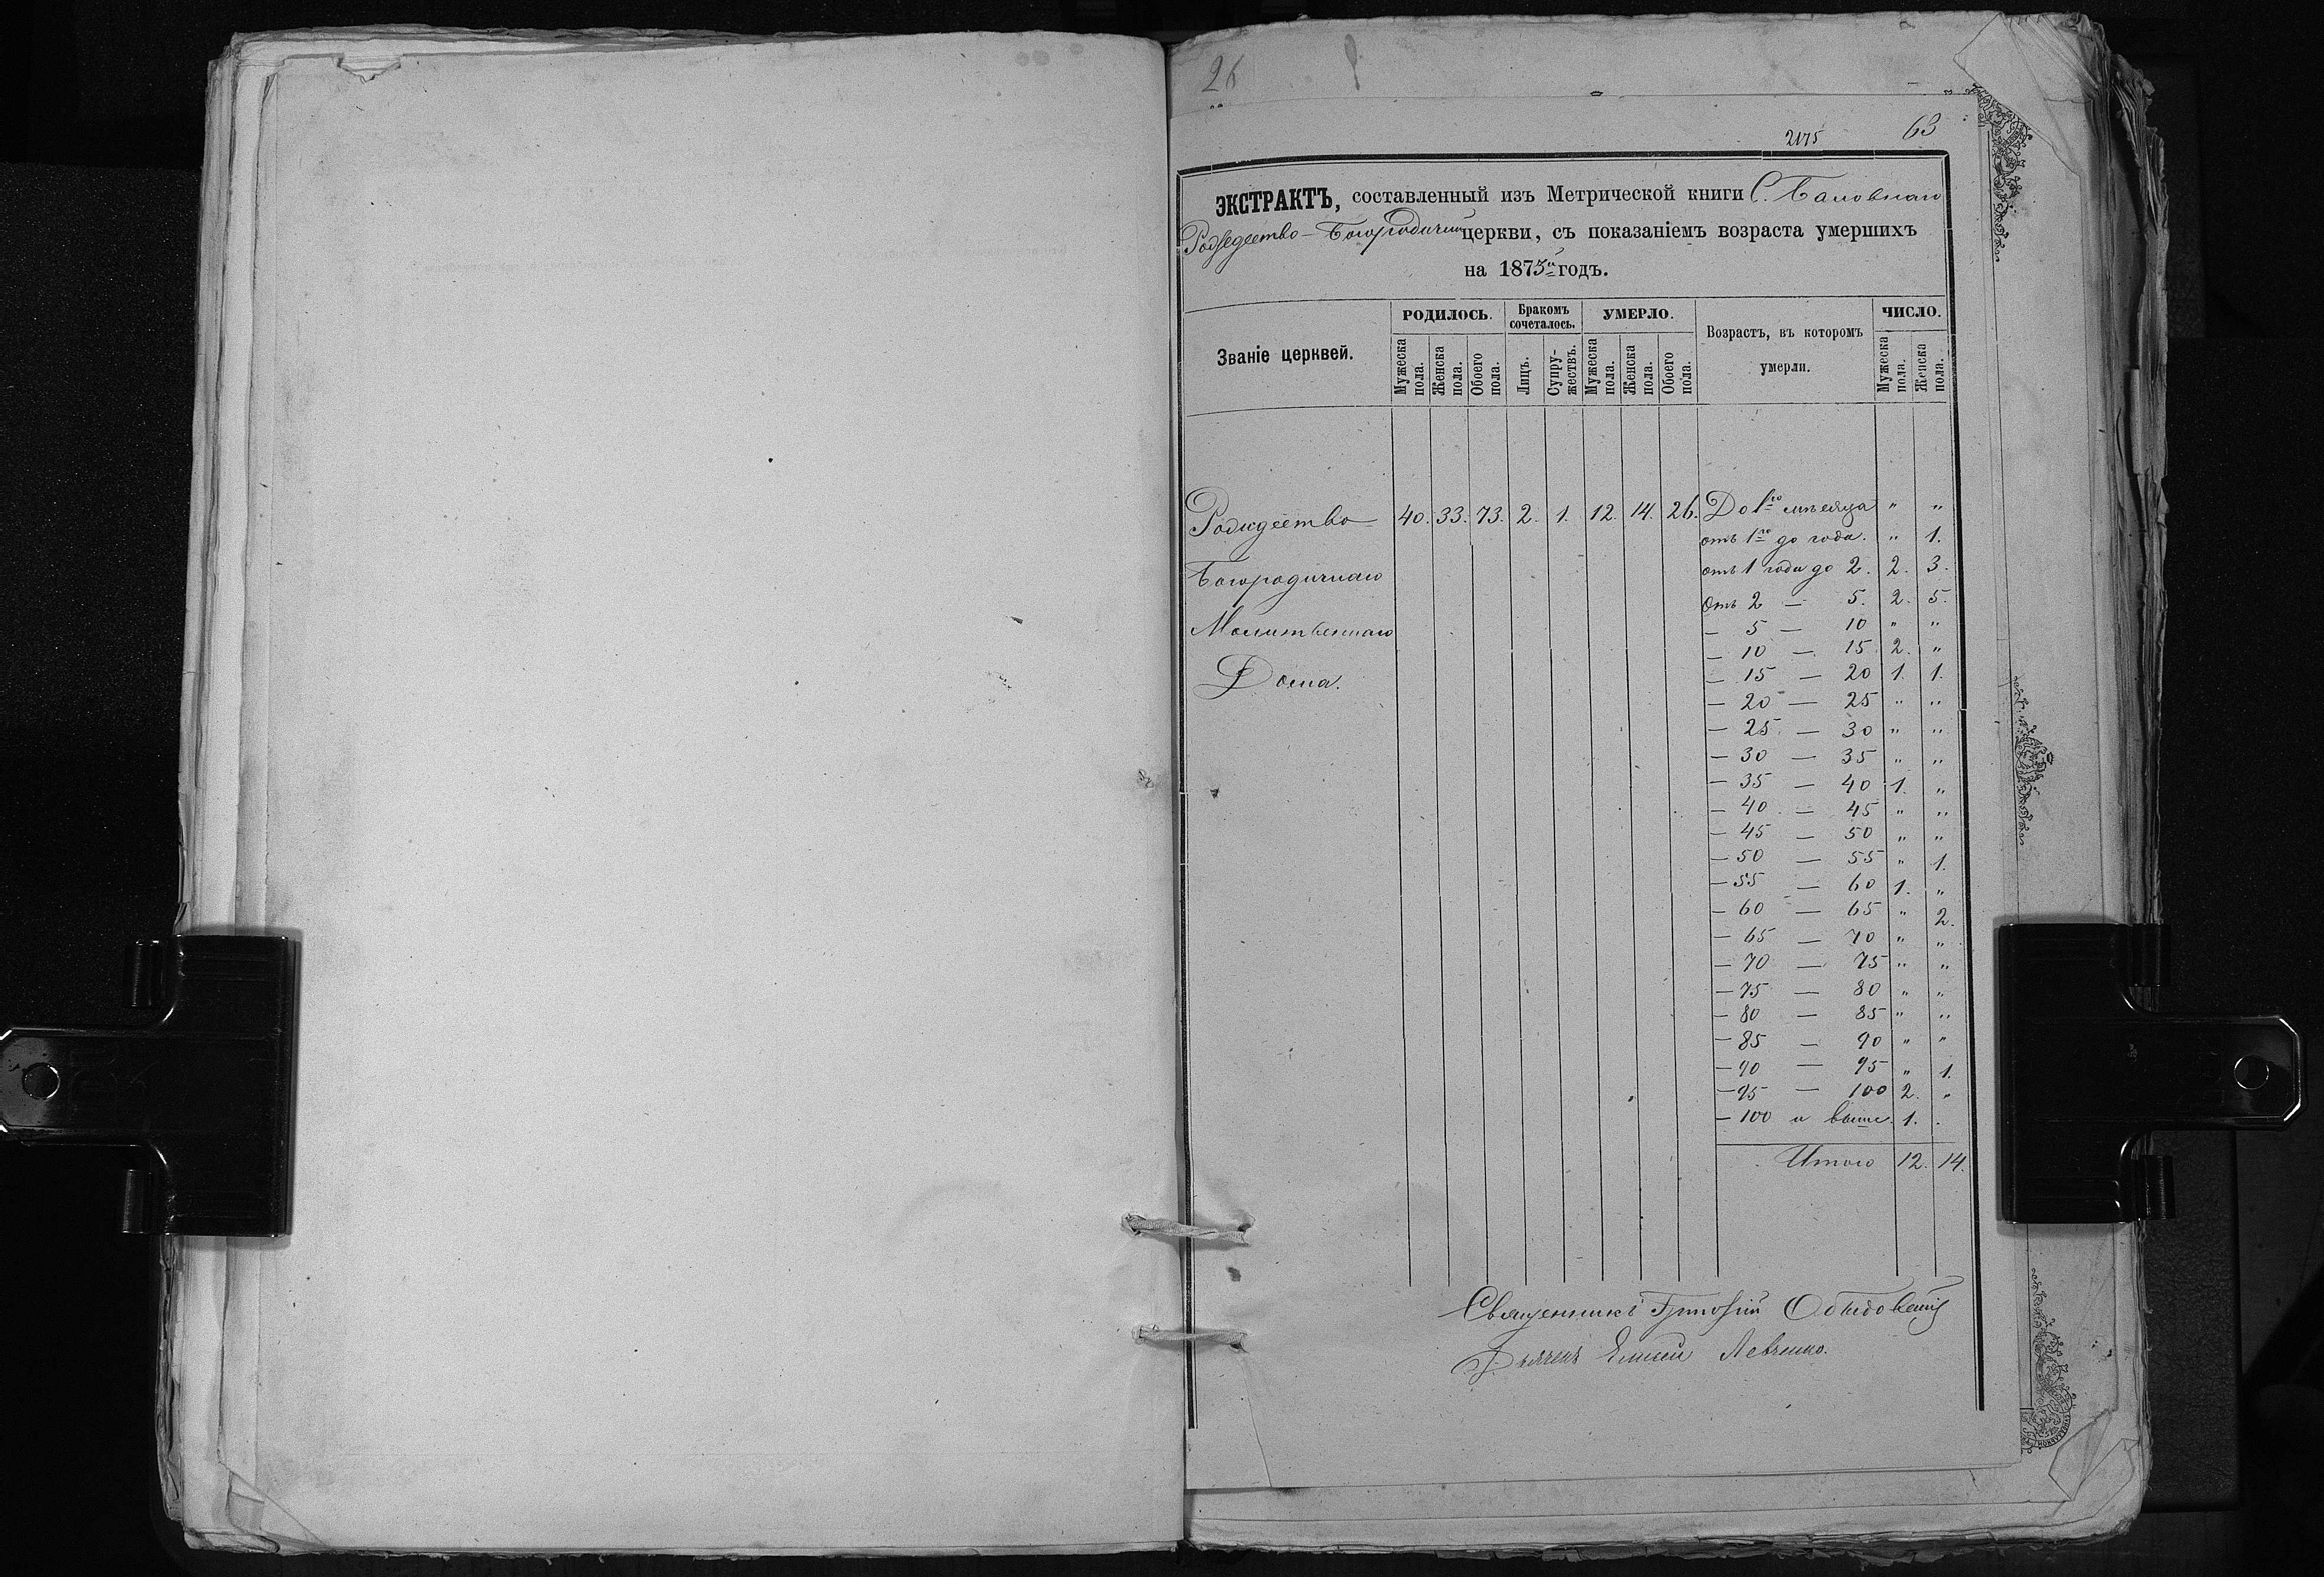 26
2175
63
ЭКСТРАКТЪ, составленный изъ Метрической книги С. Баловнаго
Рождество-Богородичной церкви, съ показаніемъ возраста умершихъ
на 1873й годъ.
Званіе церквей.
РОДИЛОСЬ.
Мужеска пола.
Женска пола.
Обоего пола.
Бракомъ сочеталось.
Лицъ.
Супружествъ.
УМЕРЛО.
Мужеска пола.
Женска пола.
Обоего пола.
Возрастъ, въ которомъ умерли.
ЧИСЛО.
Мужеска пола.
Женска пола.
Рождество 40. 33. 73. 2. 1. 12. 14. 26. До 1го мѣсяца " "
отъ 1го до года. " 1.
Богородичнаго
отъ 1 года до 2. 2. 3.
отъ 2 — 5. 2. 5.
Молитвеннаго
— 5 — 10 " "
— 10 — 15 2. "
Дома.
— 15 — 20 1. 1.
— 20 — 25 " "
— 25 — 30 " "
— 30 — 35 " "
— 35 — 40 1. "
— 40 — 45 " "
— 45 — 50 " "
— 50 — 55 " 1.
— 55 — 60 1. "
— 60 — 65 " 2.
— 65 — 70 " "
— 70 — 75 " "
— 75 — 80 " "
— 80 — 85 " "
— 85 — 90 " "
— 90 — 95 " 1.
— 95 — 100 2. "
— 100 и выше. 1. .
Итого 12. 14.
Священникъ Григорій
Дьячекъ Елисей Левченко.